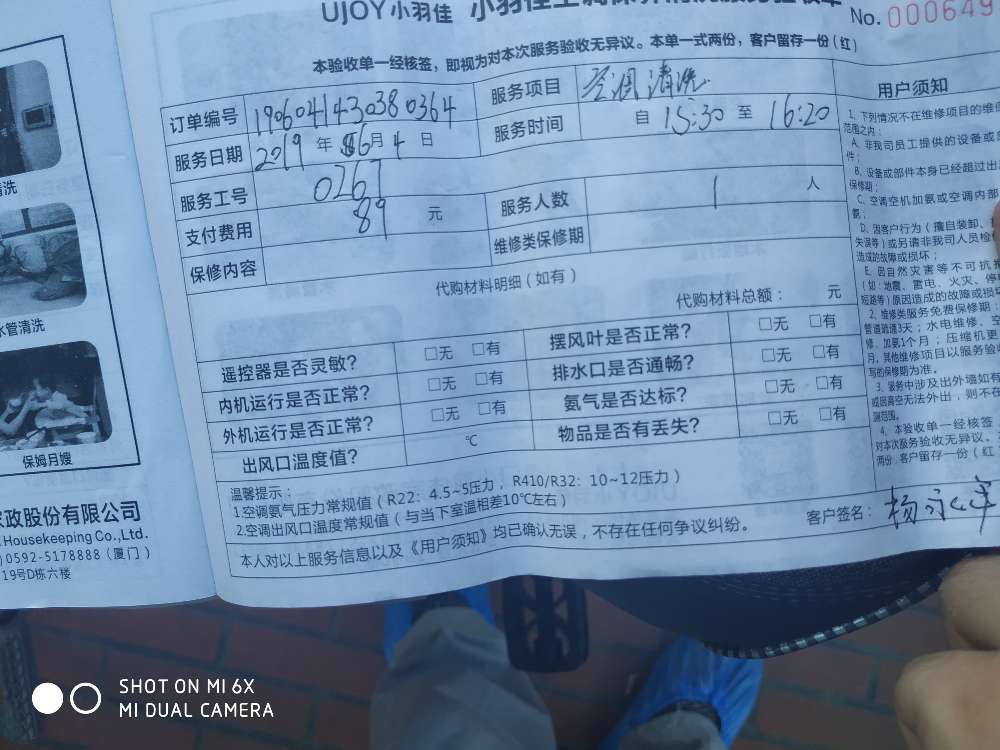 UJOY小羽佳
No. 000649
本验收单一经核签，即视为对本次服务验收无异议。本单一式两份，客户留存一份（红）
订单编号 1906041430380364 服务项目 空调清洗
服务日期 2019 年 6月 4 日 服务时间 自 15:30 至 16:20
服务工号 0267
支付费用 89 元 服务人数 1 人
保修内容 维修类保修期
代购材料明细（如有）
代购材料总额： 元
遥控器是否灵敏？ □无 □有 摆风叶是否正常？ □无 □有
内机运行是否正常？ □无 □有 排水口是否通畅？ □无 □有
外机运行是否正常？ □无 □有 氨气是否达标？ □无 □有
出风口温度值？ ℃ 物品是否有丢失？ □无 □有
温馨提示：
1.空调氨气压力常规值（R22：4.5~5压力，R410/R32：10~12压力）
2.空调出风口温度常规值（与当下室温相差10℃左右）
本人对以上服务信息以及《用户须知》均已确认无误，不存在任何争议纠纷。
客户签名：
用户须知
1、下列情况不在维修项目的维保
范围之内：
A、非我司员工提供的设备或
件；
B、设备或部件本身已经超过出
保修期；
C、空调空机加氨或空调内部
氨；
D、因客户行为（擅自装卸、
失误等）或另请非我司人员检
造成的故障或损坏；
E、因自然灾害等不可抗
（如：地震、雷电、火灾、停
短路等）原因造成的故障或损坏
2、维修类服务免费保修期：
管道疏通3天；水电维修、空
修、加氨1个月；压缩机更
月，其他维修项目以服务验收
写的保修期为准。
3、服务中涉及出外墙如有
或因高空无法外出，则不在
测范围。
4、本验收单一经核签，
对本次服务验收无异议。
两份，客户留存一份（红
清洗
水管清洗
保姆月嫂
家政股份有限公司
Housekeeping Co.,Ltd.
0592-5178888（厦门）
19号D栋六楼
SHOT ON MI 6X
MI DUAL CAMERA